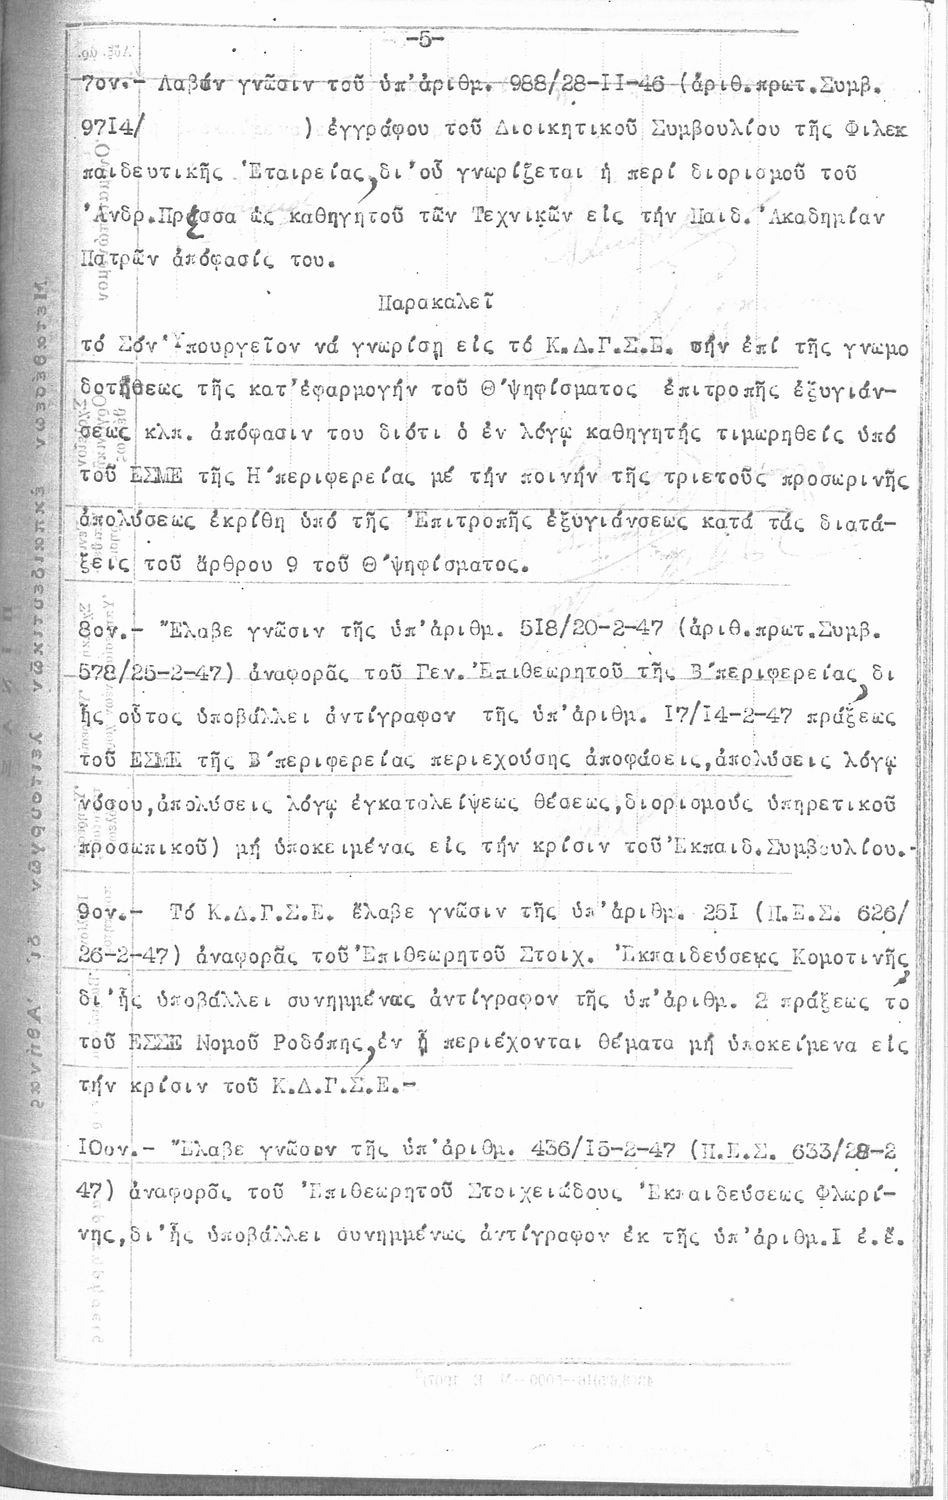 -5-
7ον.- Λαβών γνῶσιν τοῦ ὑπ'ἀριθμ. 988/28-ΙΙ-46 (ἀριθ.πρωτ.Συμβ.
97Ι4/ ) ἐγγράφου τοῦ Διοικητικοῦ Συμβουλίου τῆς Φιλεκ
παιδευτικῆς Ἑταιρείας,δι'οὗ γνωρίζεται ἡ περί διορισμοῦ τοῦ
Ἀνδρ.Πρέσσα ὡς καθηγητοῦ τῶν Τεχνικῶν εἰς τήν Παιδ.Ἀκαδημίαν
Πατρῶν ἀπόφασίς του.
Παρακαλεῖ
τό Σόν Ὑπουργεῖον νά γνωρίσῃ εἰς τό Κ.Δ.Γ.Σ.Ε. τήν ἐπί τῆς γνωμο
δοτήσεως τῆς κατ'ἐφαρμογήν τοῦ Θ'ψηφίσματος ἐπιτροπῆς ἐξυγιάν-
σεως κλπ. ἀπόφασιν του διότι ὁ ἐν λόγῳ καθηγητής τιμωρηθείς ὑπό
τοῦ ΕΣΜΕ τῆς Η'περιφερείας μέ τήν ποινήν τῆς τριετοῦς προσωρινῆς
ἀπολύσεως ἐκρίθη ὑπό τῆς Ἐπιτροπῆς ἐξυγιάνσεως κατά τάς διατά-
ξεις τοῦ ἄρθρου 9 τοῦ Θ'ψηφίσματος.
8ον.- Ἔλαβε γνῶσιν τῆς ὑπ'ἀριθμ. 5Ι8/20-2-47 (ἀριθ.πρωτ.Συμβ.
578/25-2-47) ἀναφορᾶς τοῦ Γεν.Ἐπιθεωρητοῦ τῆς Β'περιφερείας,δι
ἧς οὗτος ὑποβάλλει ἀντίγραφον τῆς ὑπ'ἀριθμ. Ι7/Ι4-2-47 πράξεως
τοῦ ΕΣΜΕ τῆς Β'περιφερείας περιεχούσης ἀποφάσεις,ἀπολύσεις λόγῳ
νόσου,ἀπολύσεις λόγῳ ἐγκαταλείψεως θέσεως,διορισμούς ὑπηρετικοῦ
προσωπικοῦ) μή ὑποκειμένας εἰς τήν κρίσιν τοῦ Ἐκπαιδ.Συμβουλίου.-
9ον.- Τό Κ.Δ.Γ.Σ.Ε. ἔλαβε γνῶσιν τῆς ὑπ'ἀριθμ. 25Ι (Π.Ε.Σ. 626/
26-2-47) ἀναφορᾶς τοῦ Ἐπιθεωρητοῦ Στοιχ. Ἐκπαιδεύσεως Κομοτινῆς,
δι'ἧς ὑποβάλλει συνημμένως ἀντίγραφον τῆς ὑπ'ἀριθμ. 2 πράξεως το
τοῦ ΕΣΣΕ Νομοῦ Ροδόπης,ἐν ᾗ περιέχονται θέματα μή ὑποκείμενα εἰς
τήν κρίσιν τοῦ Κ.Δ.Γ.Σ.Ε.-
ΙΟον.- Ἔλαβε γνῶσιν τῆς ὑπ'ἀριθμ. 436/Ι5-2-47 (Π.Ε.Σ. 633/28-2
47) ἀναφορᾶς τοῦ Ἐπιθεωρητοῦ Στοιχειώδους Ἐκπαιδεύσεως Φλωρί-
νης,δι'ἧς ὑποβάλλει συνημμένως ἀντίγραφον ἐκ τῆς ὑπ'ἀριθμ.Ι ἐ.ἔ.